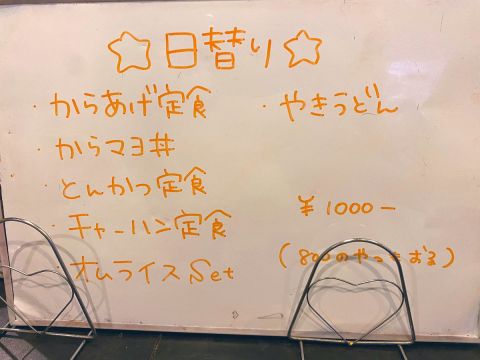 ☆日替り☆
・からあげ定食
・からマヨ丼
・とんかつ定食
・チャーハン定食
・オムライスSet
・やきうどん
¥1000-
(800のやつもある)